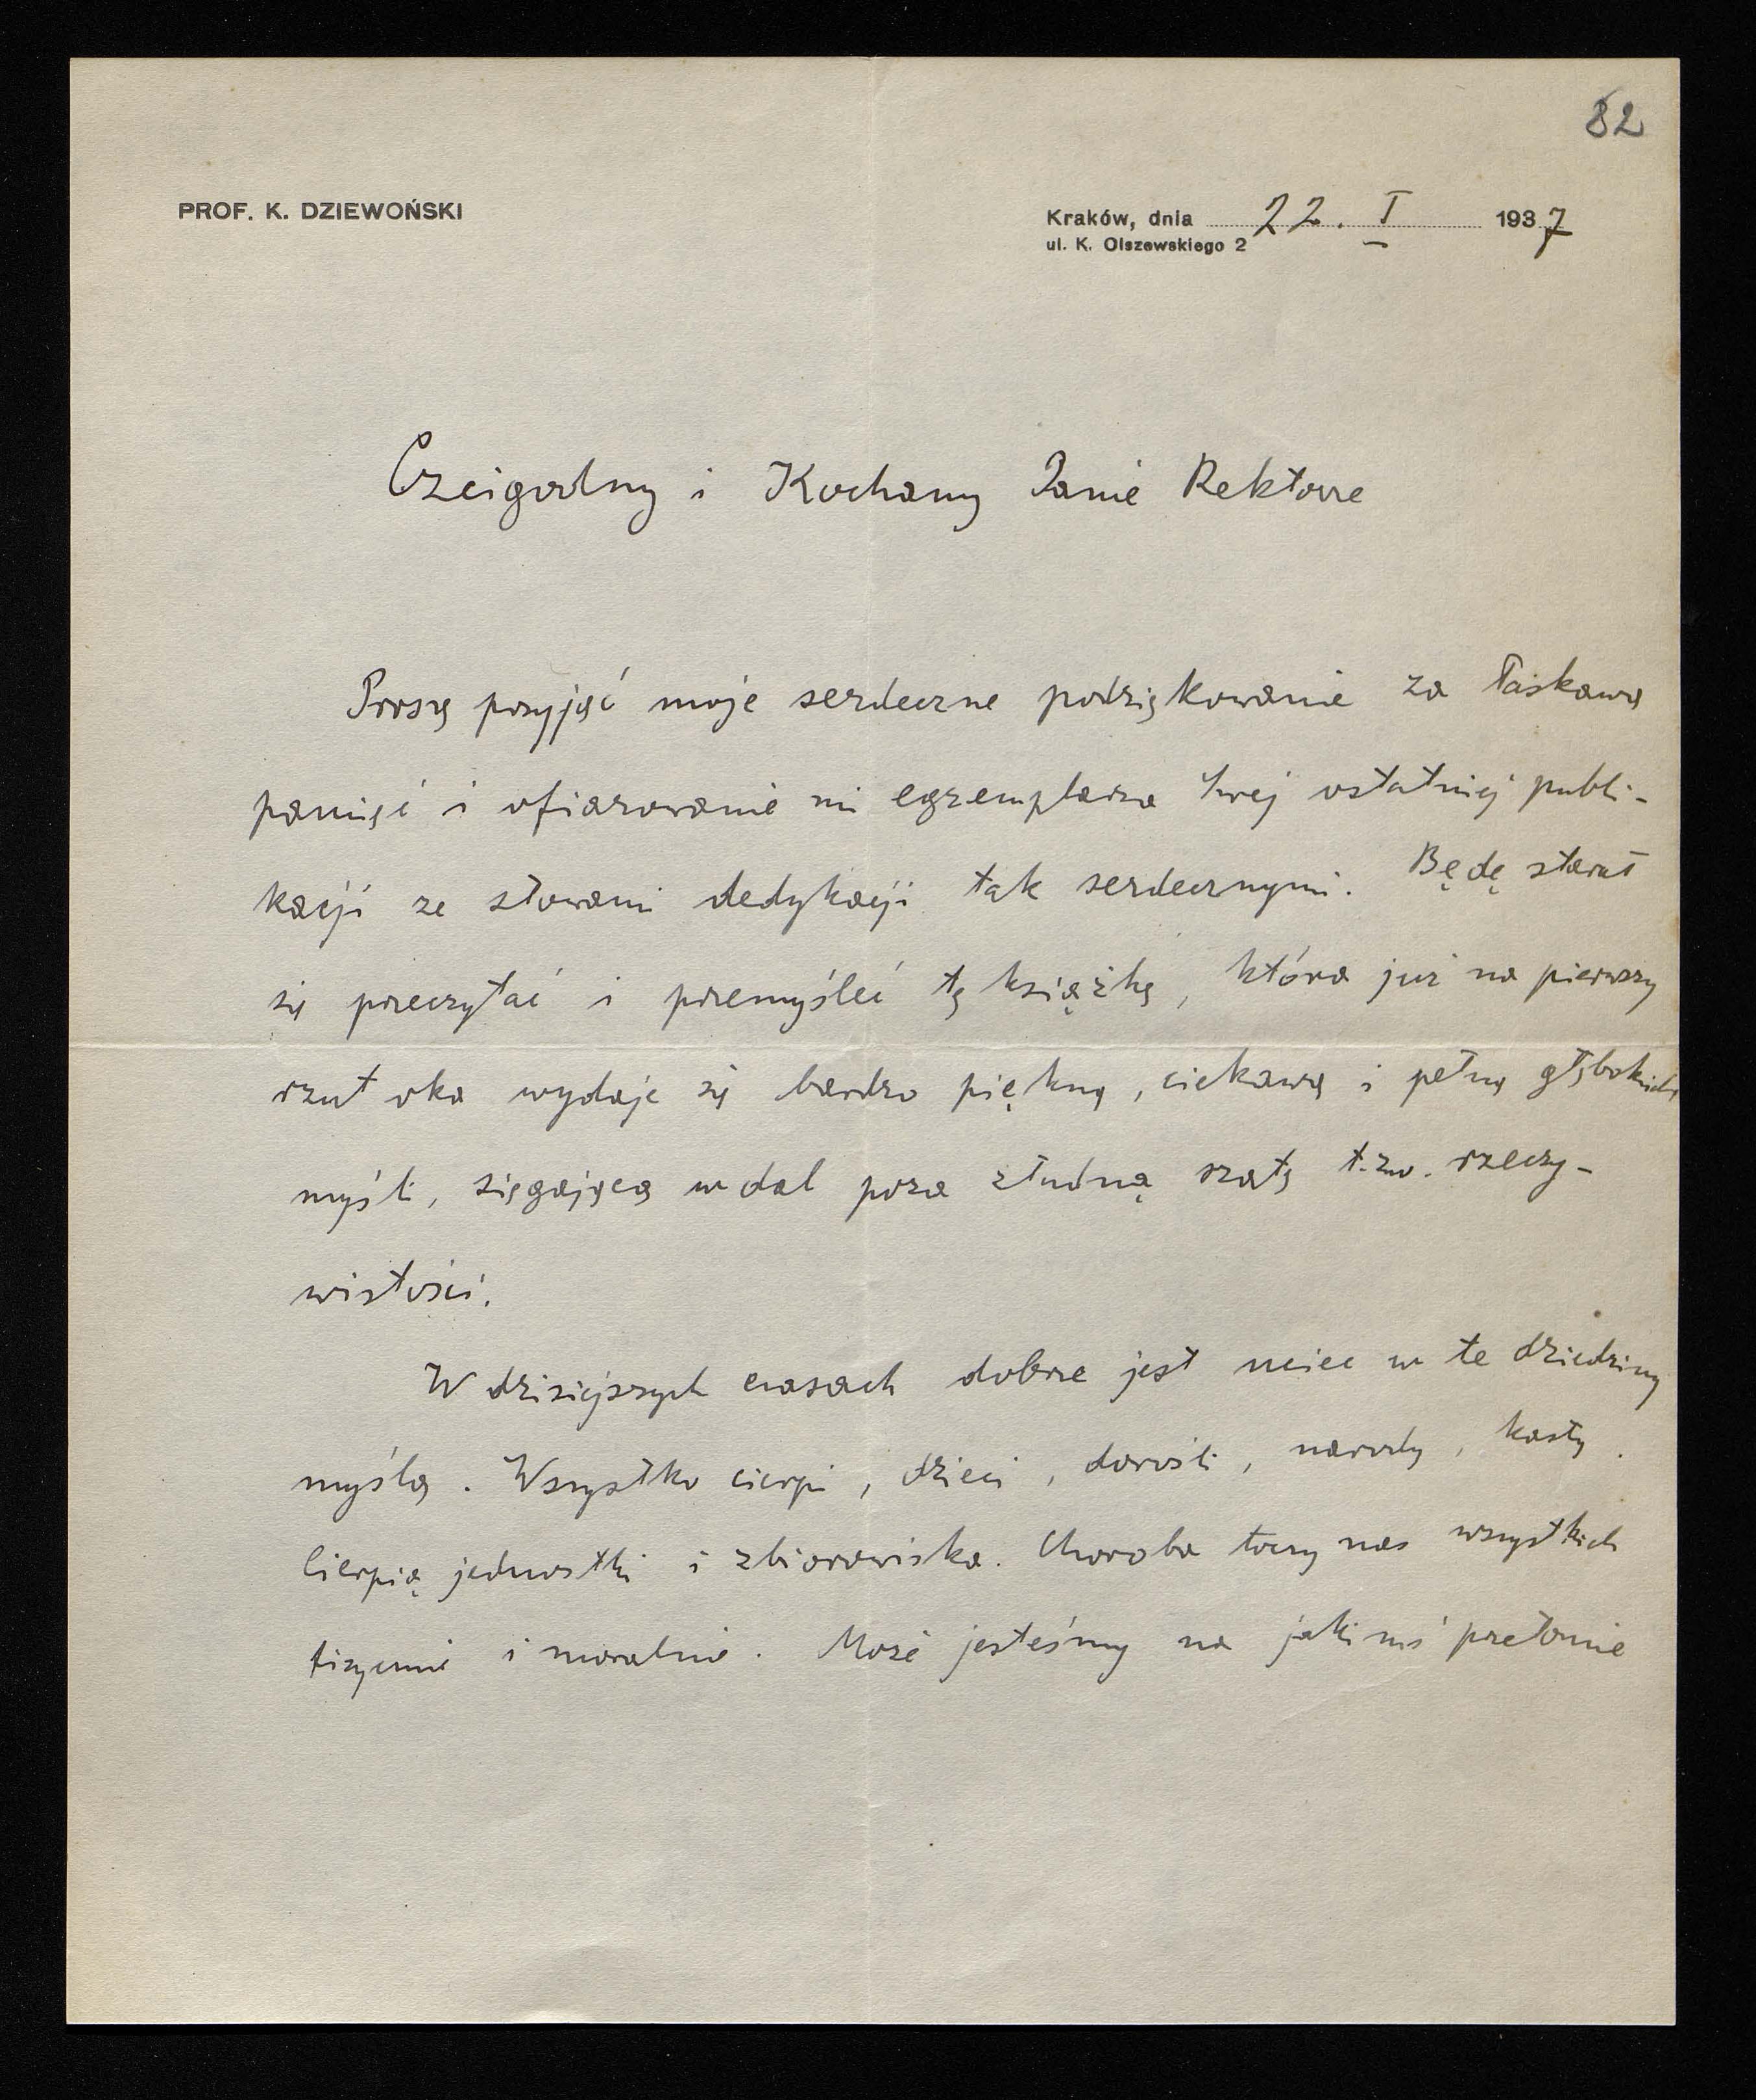 82
PROF. K. DZIEWOŃSKI
Kraków, dnia 22. I 1937
ul. K. Olszewskiego 2
Czcigodny i Kochany Panie Rektorze
Proszę przyjąć moje serdeczne podziękowanie za łaskawą
pamięć i ofiarowanie mi egzemplarza Swej ostatniej publi-
kacji ze słowami dedykacji tak serdecznymi. Będę starał
się przeczytać i przemyśleć tę książkę, która już na pierwszy
rzut oka wydaje się bardzo piękną, ciekawą i pełną głębokich
myśli, sięgającą w dal poza złudną szatę t.zw. rzeczy-
wistości.
W dzisiejszych czasach dobrze jest uciec w te dziedziny
myślą. Wszystko cierpi, dzieci, dorośli, narody, kasty.
Cierpią jednostki i zbiorowiska. Choroba toczy nas wszystkich
fizycznie i moralnie. Może jesteśmy na jakimś przełomie